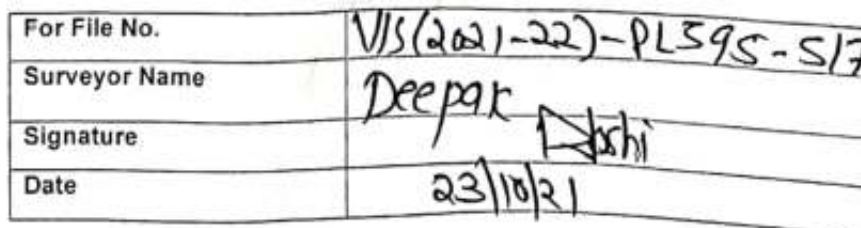 For File No. VIS(2021-22)-PL595-517
Surveyor Name Deepak
Signature Joshi
Date 23/10/21